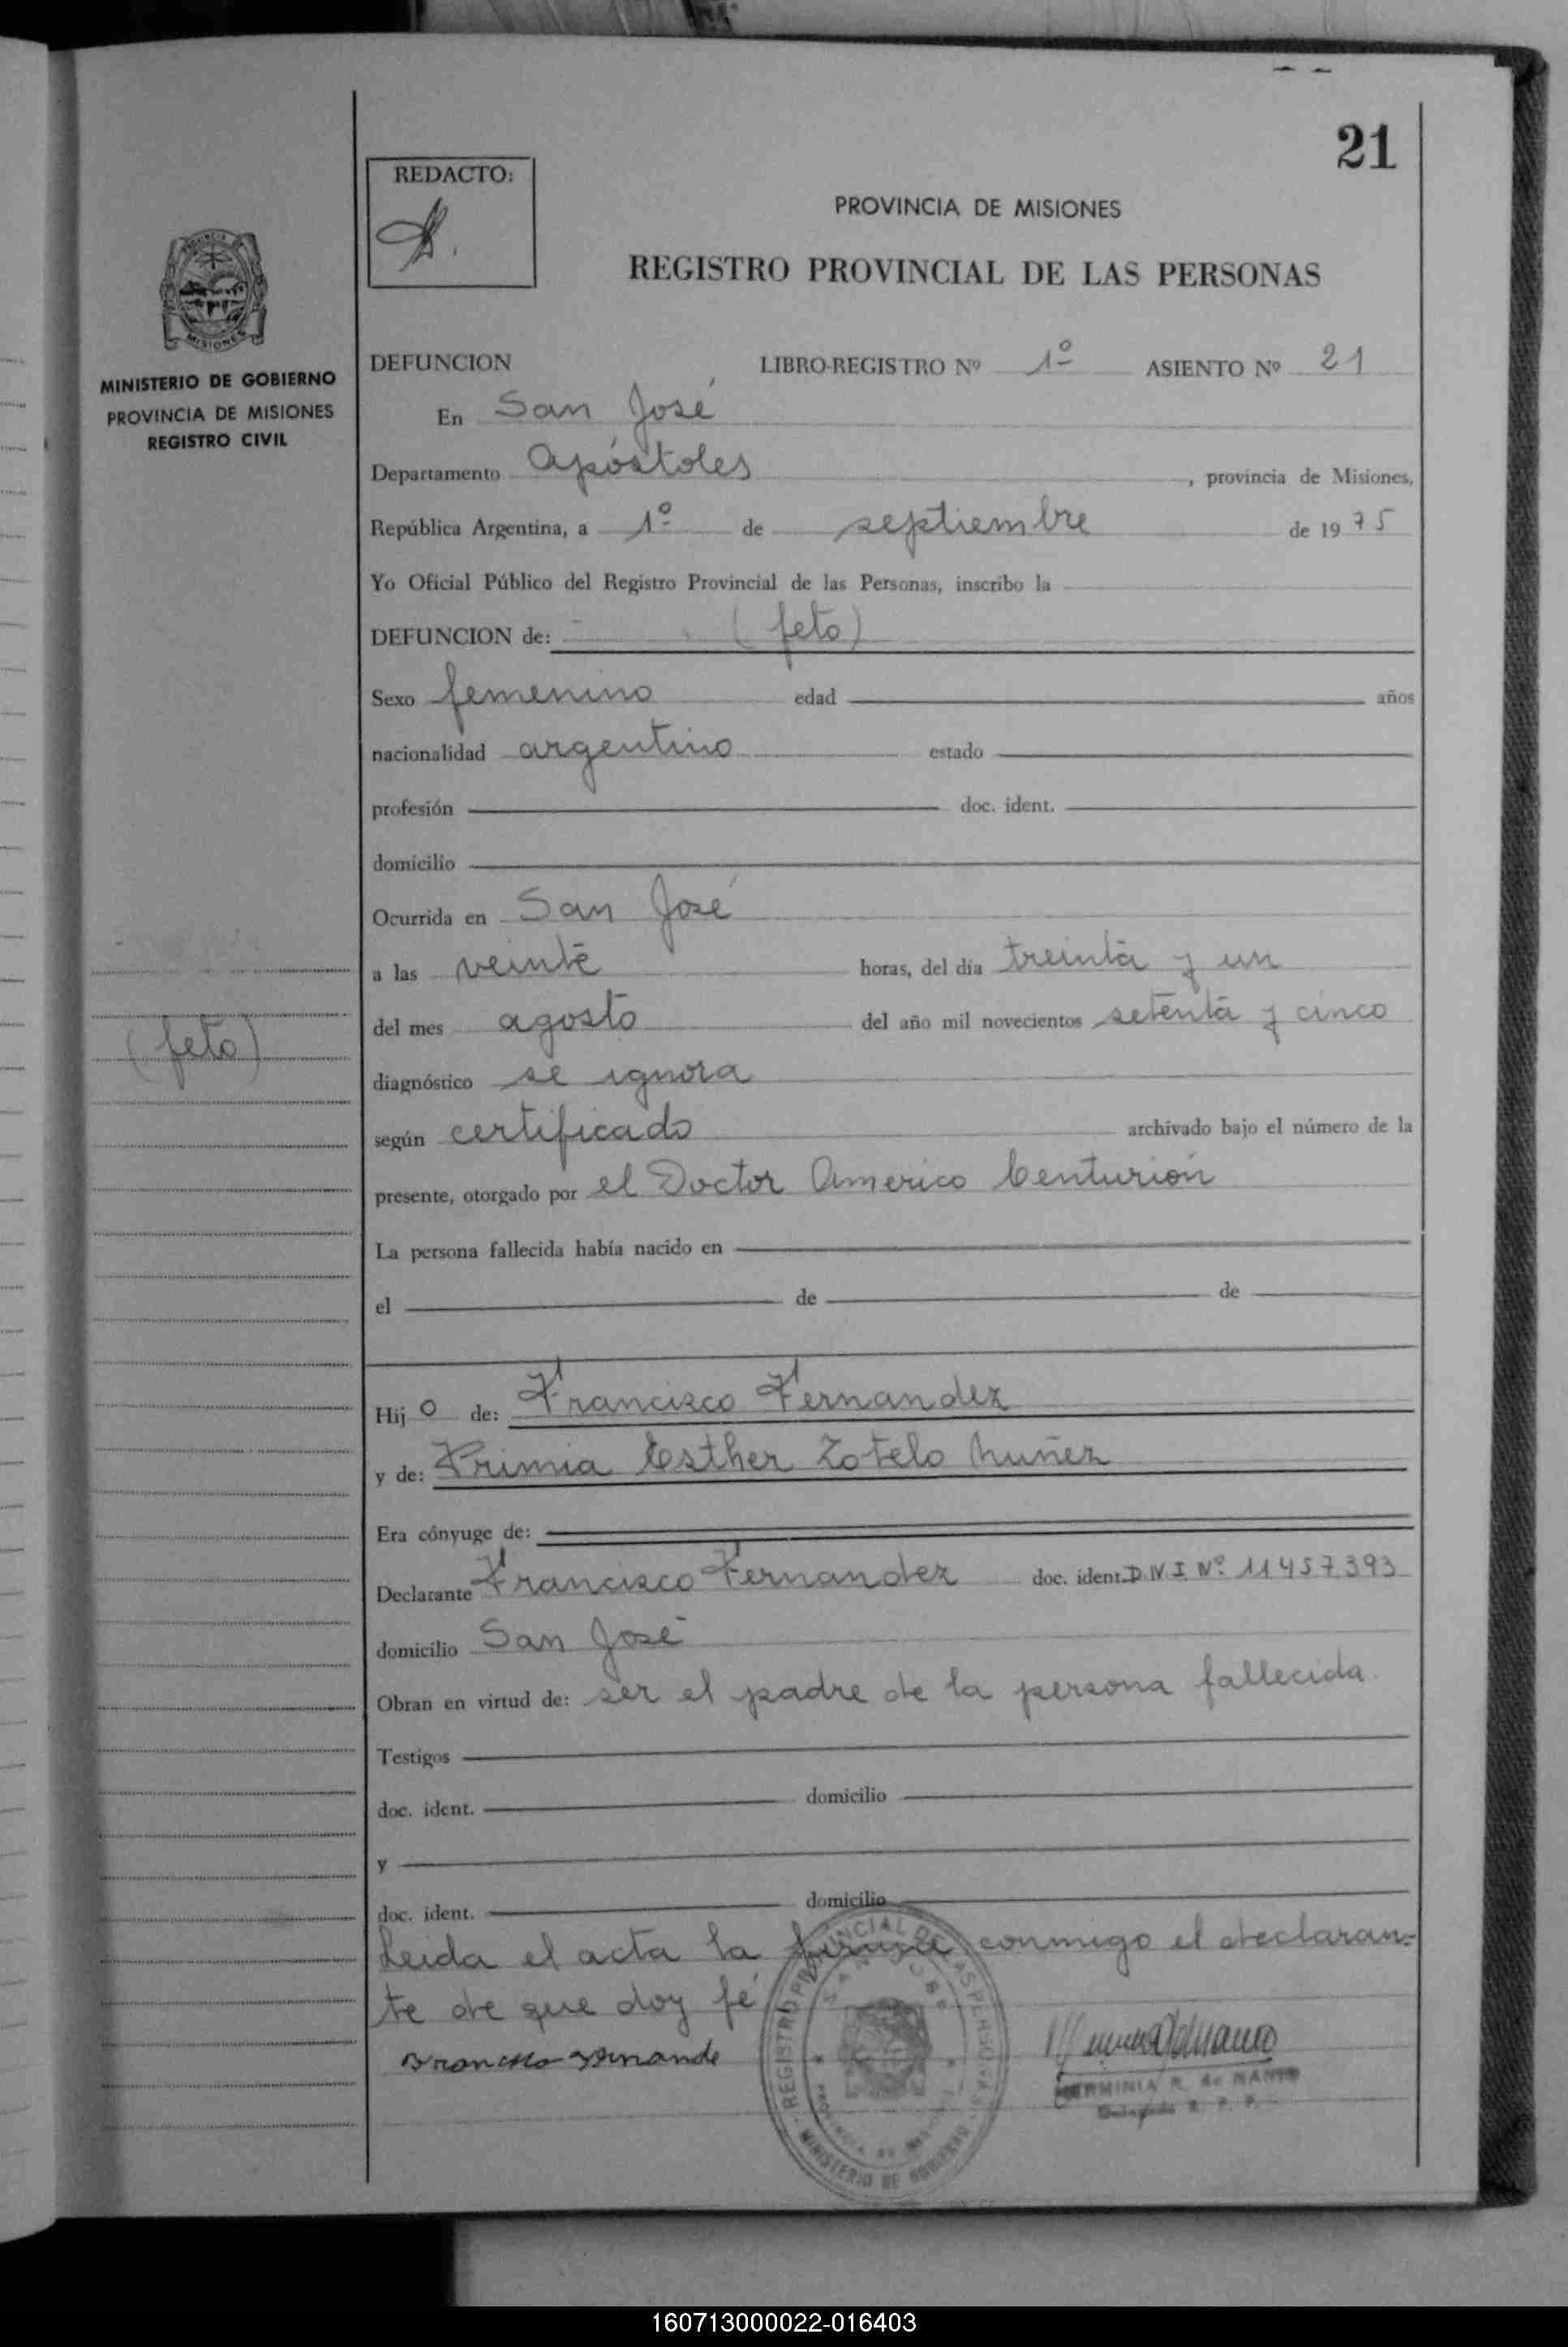 21
REDACTO:
PROVINCIA DE MISIONES
REGISTRO PROVINCIAL DE LAS PERSONAS
MISIONES
MINISTERIO DE GOBIERNO
PROVINCIA DE MISIONES
REGISTRO CIVIL
DEFUNCION LIBRO-REGISTRO Nº 1º ASIENTO Nº 21
En San José
Departamento Apóstoles, provincia de Misiones,
República Argentina, a 1º de septiembre de 1975
Yo Oficial Público del Registro Provincial de las Personas, inscribo la
DEFUNCION de: (feto)
Sexo femenino edad años
nacionalidad argentino estado
profesión doc. ident.
domicilio
Ocurrida en San José
a las veinte horas, del día treinta y un
del mes agosto del año mil novecientos setenta y cinco
(feto)
diagnóstico se ignora
según certificado archivado bajo el número de la
presente, otorgado por el Doctor Americo Centurión
La persona fallecida había nacido en
el de de
Hijo de: Francisco Fernandez
y de: Primia Esther Zotelo Nuñez
Era cónyuge de:
Declarante Francisco Fernandez doc. ident. D.N.I. Nº 11457393
domicilio San José
Obran en virtud de: ser el padre de la persona fallecida
Testigos
doc. ident. domicilio
y
doc. ident. domicilio
Leida el acta la conmigo el declaran-
te de que doy fé
REGISTRO PROVINCIAL DE LAS PERSONAS
SAN JOSE
MINISTERIO DE GOBIERNO
HERMINIA R. de
160713000022-016403